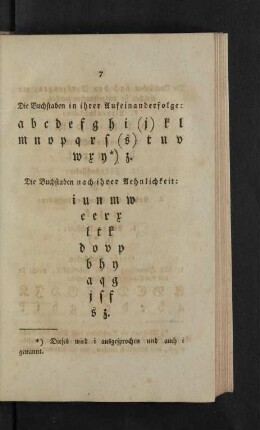 7
Die Buchstaben in ihrer Aufeinanderfolge:
a b c d e f g h i (j) k l
m n o p q r ſ (s) t u v
w x y*) z.
Die Buchstaben nach ihrer Aehnlichkeit:
i u n m w
c e r x
l t k
d o v p
b h y
a q g
j ſ f
s z.
*) Dieses wird i ausgesprochen und auch i
genannt.